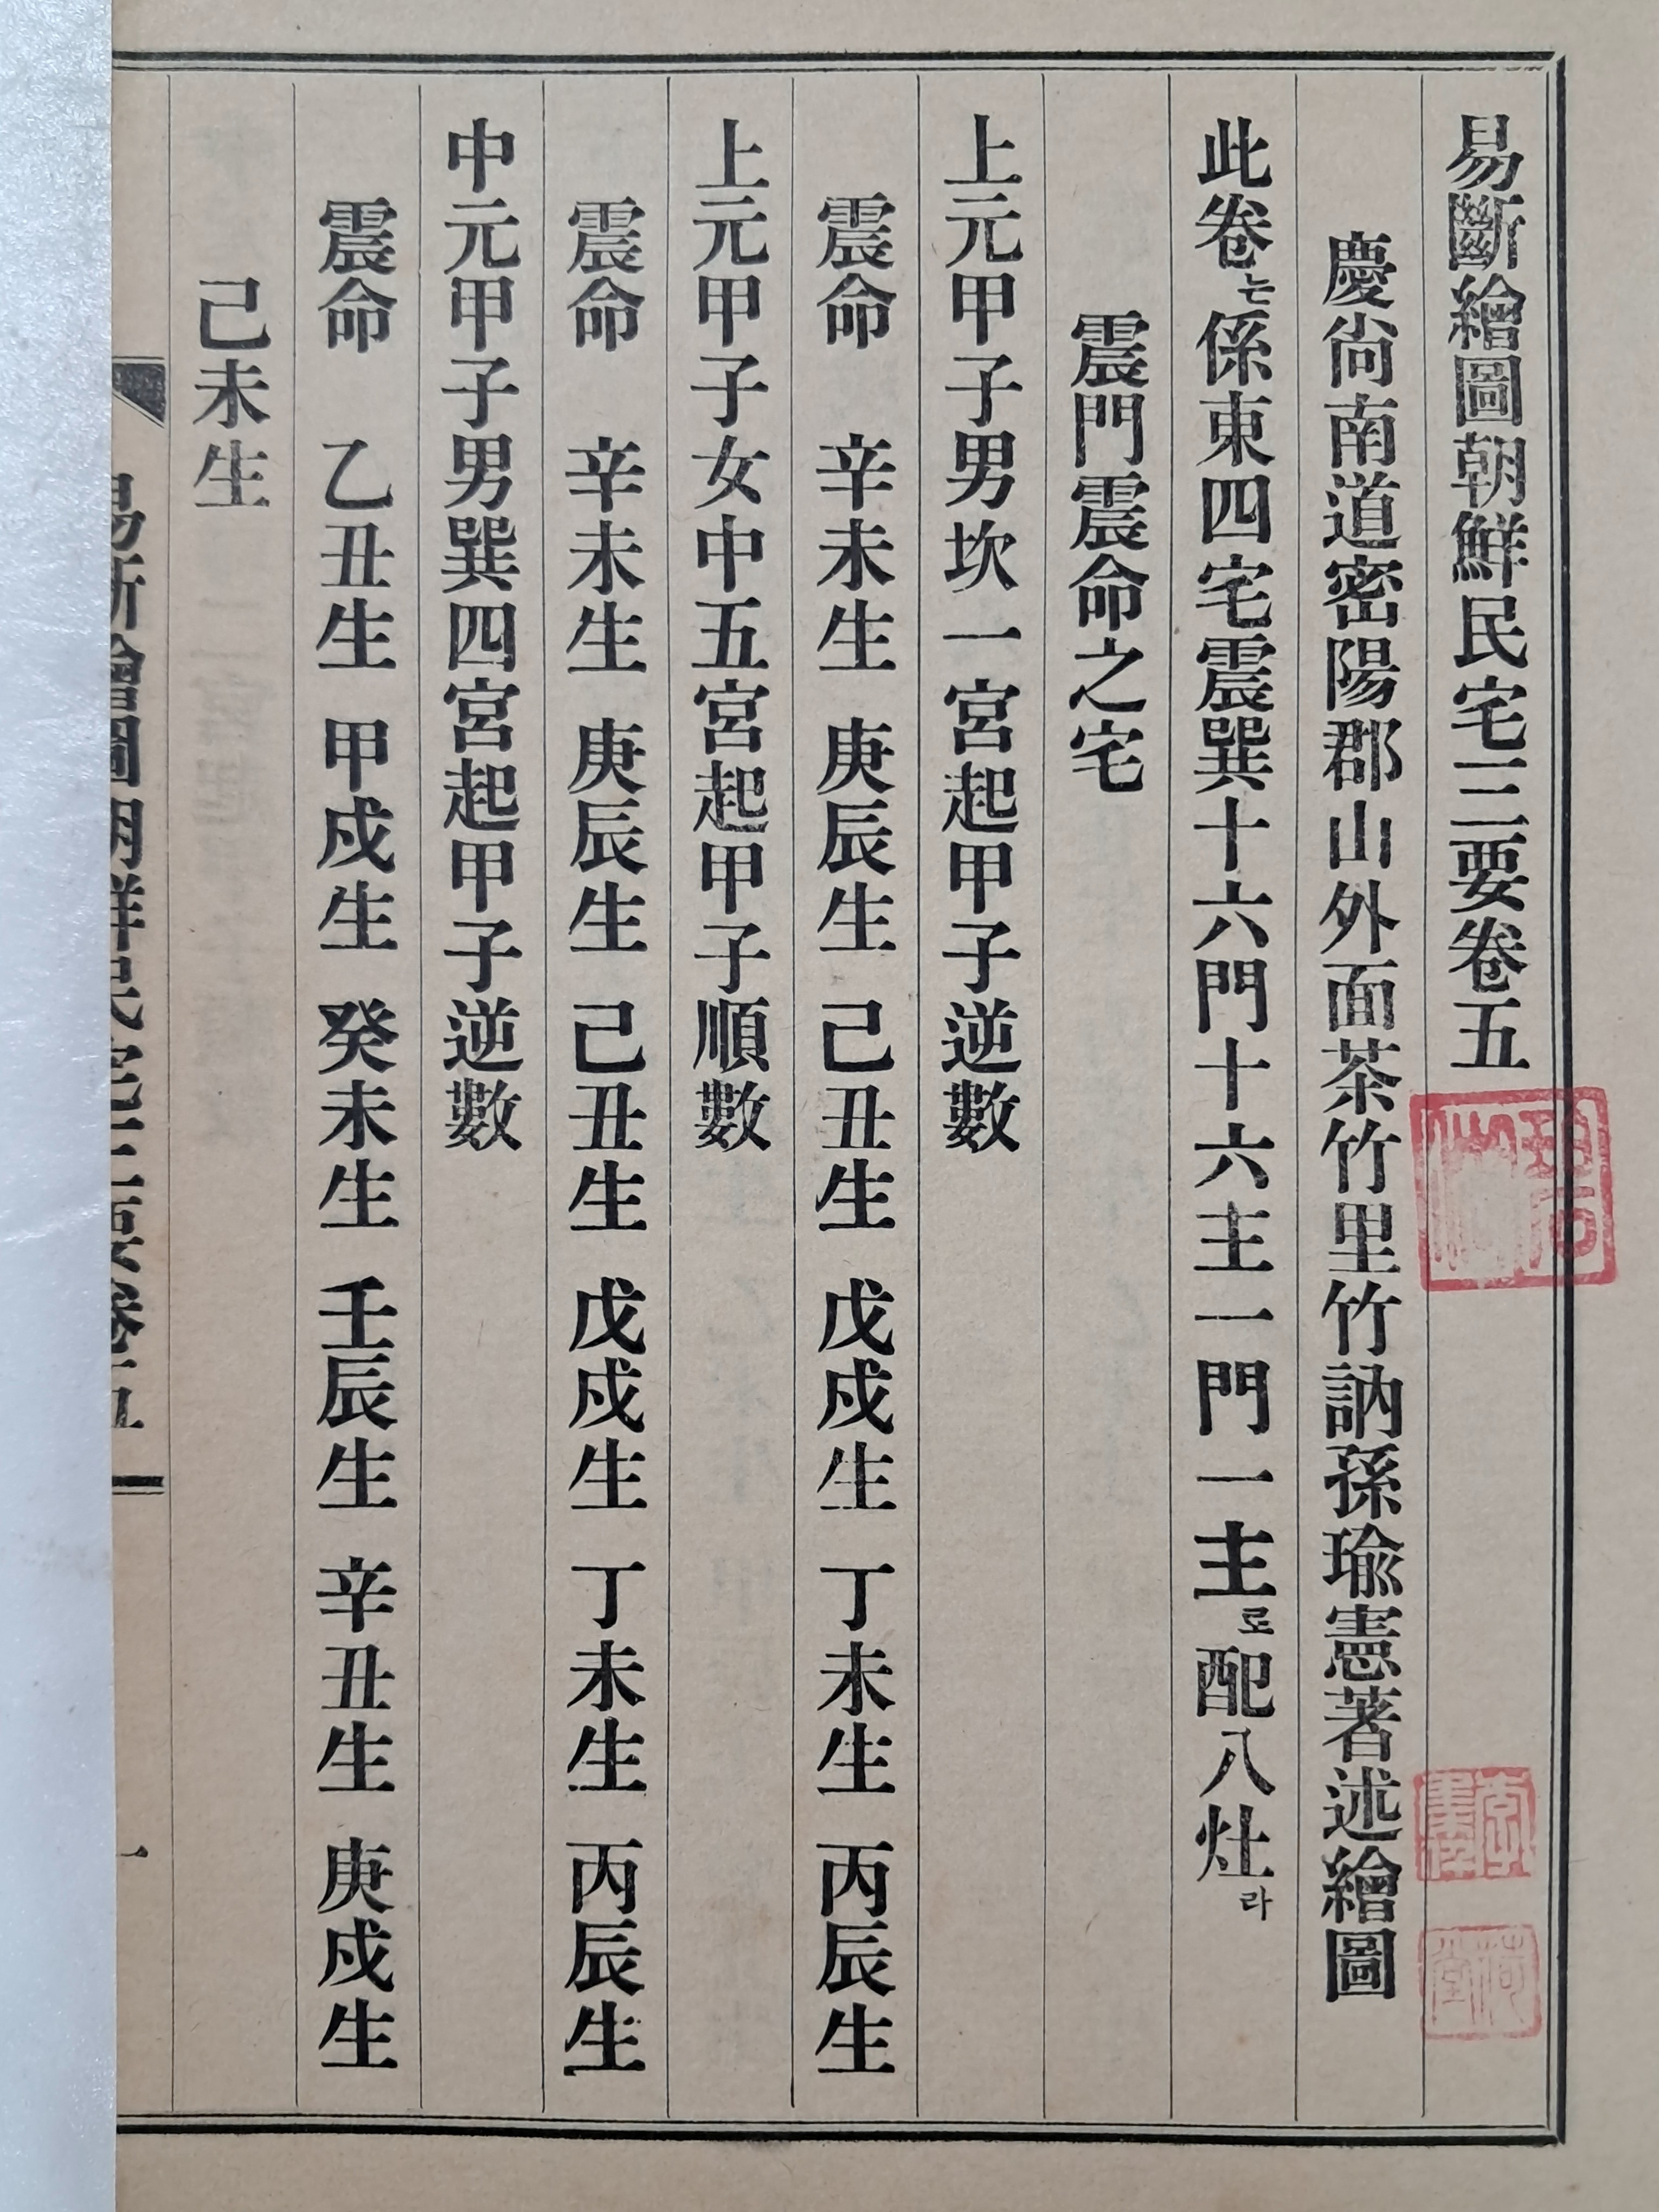 易斷繪圖朝鮮民宅三要卷五
慶尙南道密陽郡山外面茶竹里竹訥孫瑜憲著述繪圖
此卷는係東四宅震巽十六門十六主一門一主로配八灶라
震門震命之宅
上元甲子男坎一宮起甲子逆數
震命 辛未生 庚辰生 己丑生 戊戍生 丁未生 丙辰生
上元甲子女中五宮起甲子順數
震命 辛未生 庚辰生 己丑生 戊戍生 丁未生 丙辰生
中元甲子男巽四宮起甲子逆數
震命 乙丑生 甲戍生 癸未生 壬辰生 辛丑生 庚戍生
己未生
易斷繪圖朝鮮民宅三要卷五 一